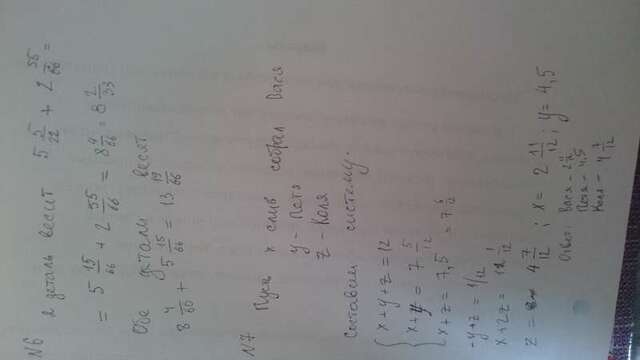 N6
2 деталь весит 5 5/22 + 2 55/66 =
= 5 15/66 + 2 55/66 = 8 4/66 = 8 2/33
Обе детали весят
8 4/66 + 5 15/66 = 13 19/66
N7
Пусть x слив собрал Вася
y - Петя
z - Коля
Составим систему.
x + y + z = 12
x + y = 7 5/12
x + z = 7,5 = 7 6/12
-y + z = 1/12
x + 2z = 12 1/12
z = 4 7/12 ; x = 2 11/12 ; y = 4,5
Ответ: Вася - 2 11/12
Петя - 4,5
Коля - 4 7/12